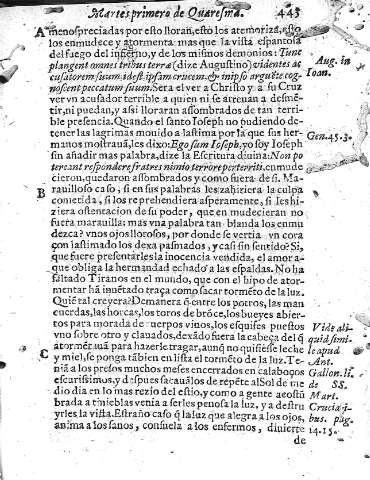 Martes primero de Quaresma. 443
A menospreciadas por esto lloran, esto los atemoriza, esto
los enmudece y atormenta mas que la vista espantosa
del fuego del infierno, y de los mismos demonios: Tunc
plangent omnes tribus terræ (dize Augustino) videntes ac
cusatorem suum, idest ipsam crucem, & in ipso arguete cog-
noscent peccatum suum. Sera el ver a Christo y a su Cruz
ver vn acusador terrible a quien ni se atreuan a desme
tir, ni puedan, y assi lloraran assombrados de tan terri
ble presencia. Quando el santo Ioseph no pudiendo de-
tener las lagrimas mouido a lastima por la que sus her
manos mostrauã, les dixo: Ego sum Ioseph, yo soy Ioseph
sin añadir mas palabra, dize la Escritura diuina: Non po
terant respondere fratres nimio terrore perterriti, enmude
cieron, quedaron assombrados y como fuera de si. Ma-
B rauilloso caso, si en sus palabras les zahiziera la culpa
cometida, si los reprehendiera asperamente, si les hi
ziera ostentacion de su poder, que en mudecieran no
fuera marauilla: mas vna palabra tan blanda los enmu
dezca? vnos ojos llorosos, por donde se vertia vn cora
çon lastimado los dexa pasmados, y casi sin sentido? Si,
que fuere presentarles la inocencia vendida, el amor a-
que obliga la hermandad echado a las espaldas. No ha
faltado Tiranos en el mundo, que con el hipo de ator-
mentar hã inuētado traça como sacar tormēto de la luz.
Quiē tal creyera? Demanera q̃ entre los potros, las man
cuerdas, las horcas, los toros de brõce, los bueyes abier
tos para morada de cuerpos viuos, los esquifes puestos
vno sobre otro y clauados, dexãdo fuera la cabeça del q̃
atormētauã para hazerle tragar, aunq̃ no quisiesse leche
C y miel, se ponga tãbien en lista el tormēto de la luz. Te-
niã a los presos muchos meses encerrados en calaboços
escurissimos, y despues sacauãlos de repēte al Sol de me
dio dia en lo mas rezio del estio, y como a gente acostũ
brada a tinieblas venia a serles penosa la luz, y a destru
yrles la vista. Estraño caso q̃ la luz que alegra a los ojos,
anima a los sanos, consuela a los enfermos, diuierte
de
Aug. in
Ioan.
Gen. 45. 3.
Vide ali-
quid simi-
le apud
Ant.
Gallon. li.
de SS.
Mart.
Cruciati-
bus. pag.
14. 15.